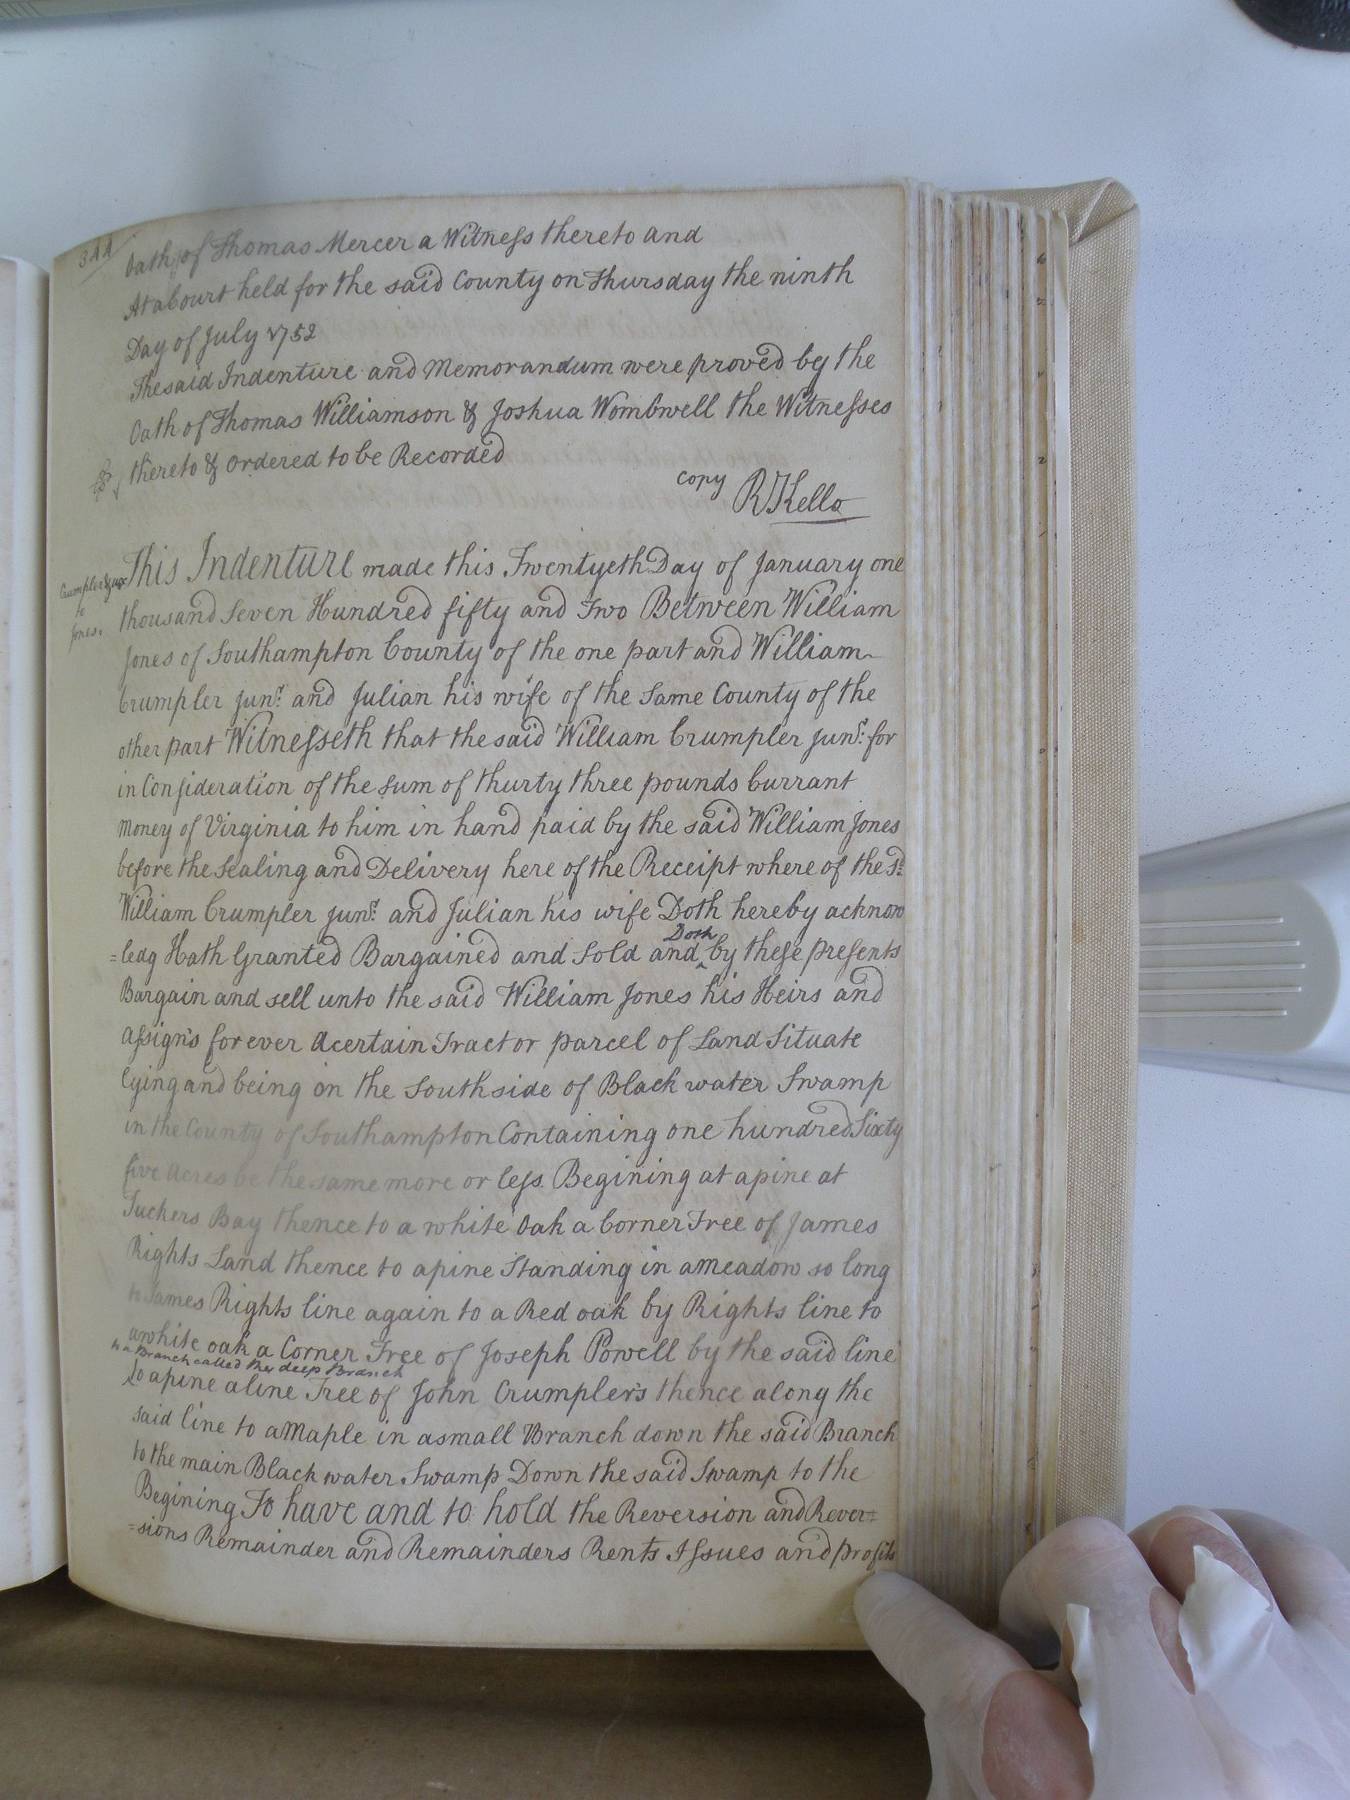 344
Oath of Thomas Mercer a Witness thereto and
At a Court held for the said County on Thursday the ninth
Day of July 1752
The said Indenture and Memorandum were proved by the
Oath of Thomas Williamson & Joshua Wombwell the Witnesses
thereto & ordered to be Recorded
Copy RJKello
Crumpler & ux
to
Jones.
This Indenture made this Twentyeth Day of January one
thousand Seven Hundred fifty and Two Between William
Jones of Southampton County of the one part and William
Crumpler junr. and Julian his wife of the Same County of the
other part Witnesseth that the said William Crumpler junr. for
in Consideration of the sum of thurty three pounds Currant
Money of Virginia to him in hand paid by the said William Jones
before the Sealing and Delivery here of the Receipt where of the sd.
William Crumpler junr. and Julian his wife Doth hereby acknow
=ledg Hath Granted Bargained and Sold and ^ by these presents
Doth
Bargain and sell unto the said William Jones his Heirs and
assigns for ever a certain Tract or parcel of Land Situate
lying and being on the South side of Black water Swamp
in the County of Southampton Containing one hundred Sixty
five Acres be the same more or less Begining at a pine at
Tuckers Bay thence to a white oak a Corner Tree of James
Rights Land thence to a pine Standing in a meadow so long
to James Rights line again to a Red oak by Rights line to
a white oak a Corner Tree of Joseph Powell by the said line
to a Branch called the deep Branch
to a pine a line Tree of John Crumplers thence along the
said line to a Maple in a small Branch down the said Branch
to the main Black water Swamp Down the said Swamp to the
Begining To have and to hold the Reversion and Rever=
=sions Remainder and Remainders Rents Issues and profits